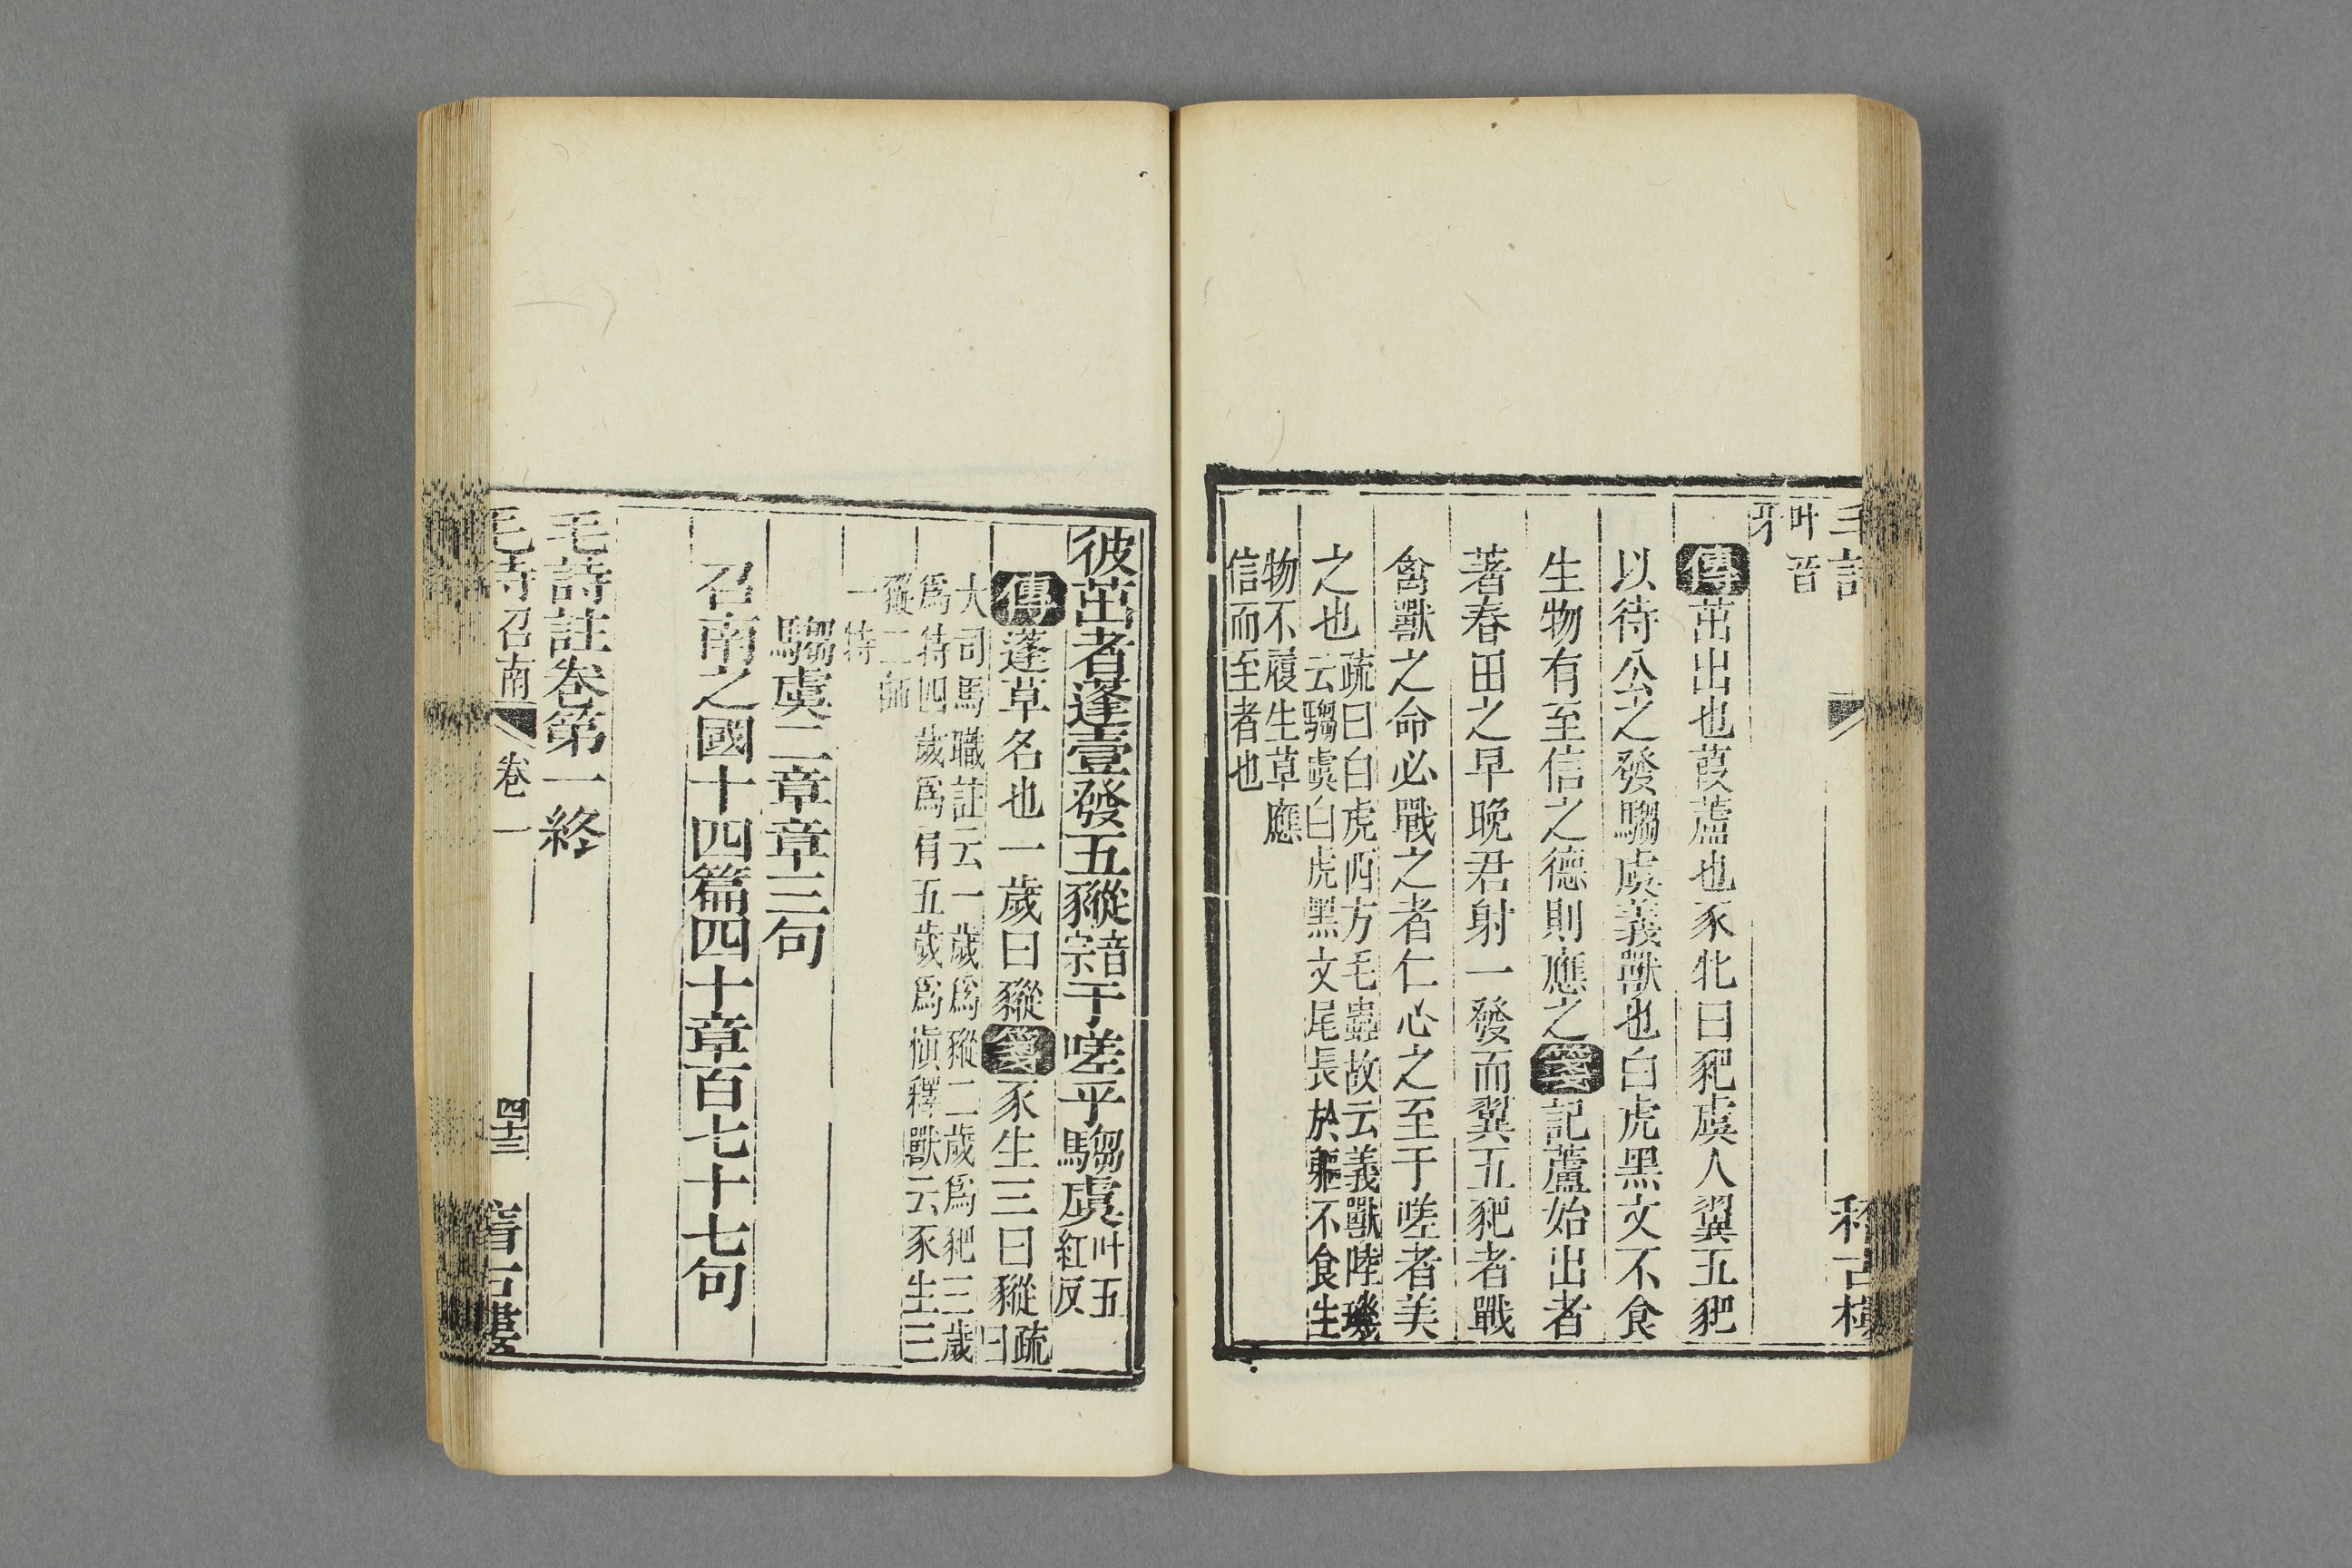 毛詩
叶音
牙
傳茁出也葭蘆也豕牝曰豝虞人翼五豝
以待公之發騶虞義獸也白虎黑文不食
生物有至信之德則應之箋記蘆始出者
著春田之早晚君射一發而翼五豝者戰
禽獸之命必戰之者仁心之至于嗟者美
之也疏曰白虎西方毛蟲故云義獸陸璣
云騶虞白虎黑文尾長於軀不食生
物不履生草應
信而至者也
彼茁者蓬壹發五豵音宗于嗟乎騶虞叶五紅反
傳蓬草名也一歲曰豵箋豕生三曰豵疏曰
大司馬職註云一歲爲豵二歲爲豝三歲
爲特四歲爲肩五歲爲慎釋獸云豕生三
豵二師
一特
騶虞二章章三句
召南之國十四篇四十章百七十七句
毛詩註卷第一終
毛詩 召南 卷一 四十三